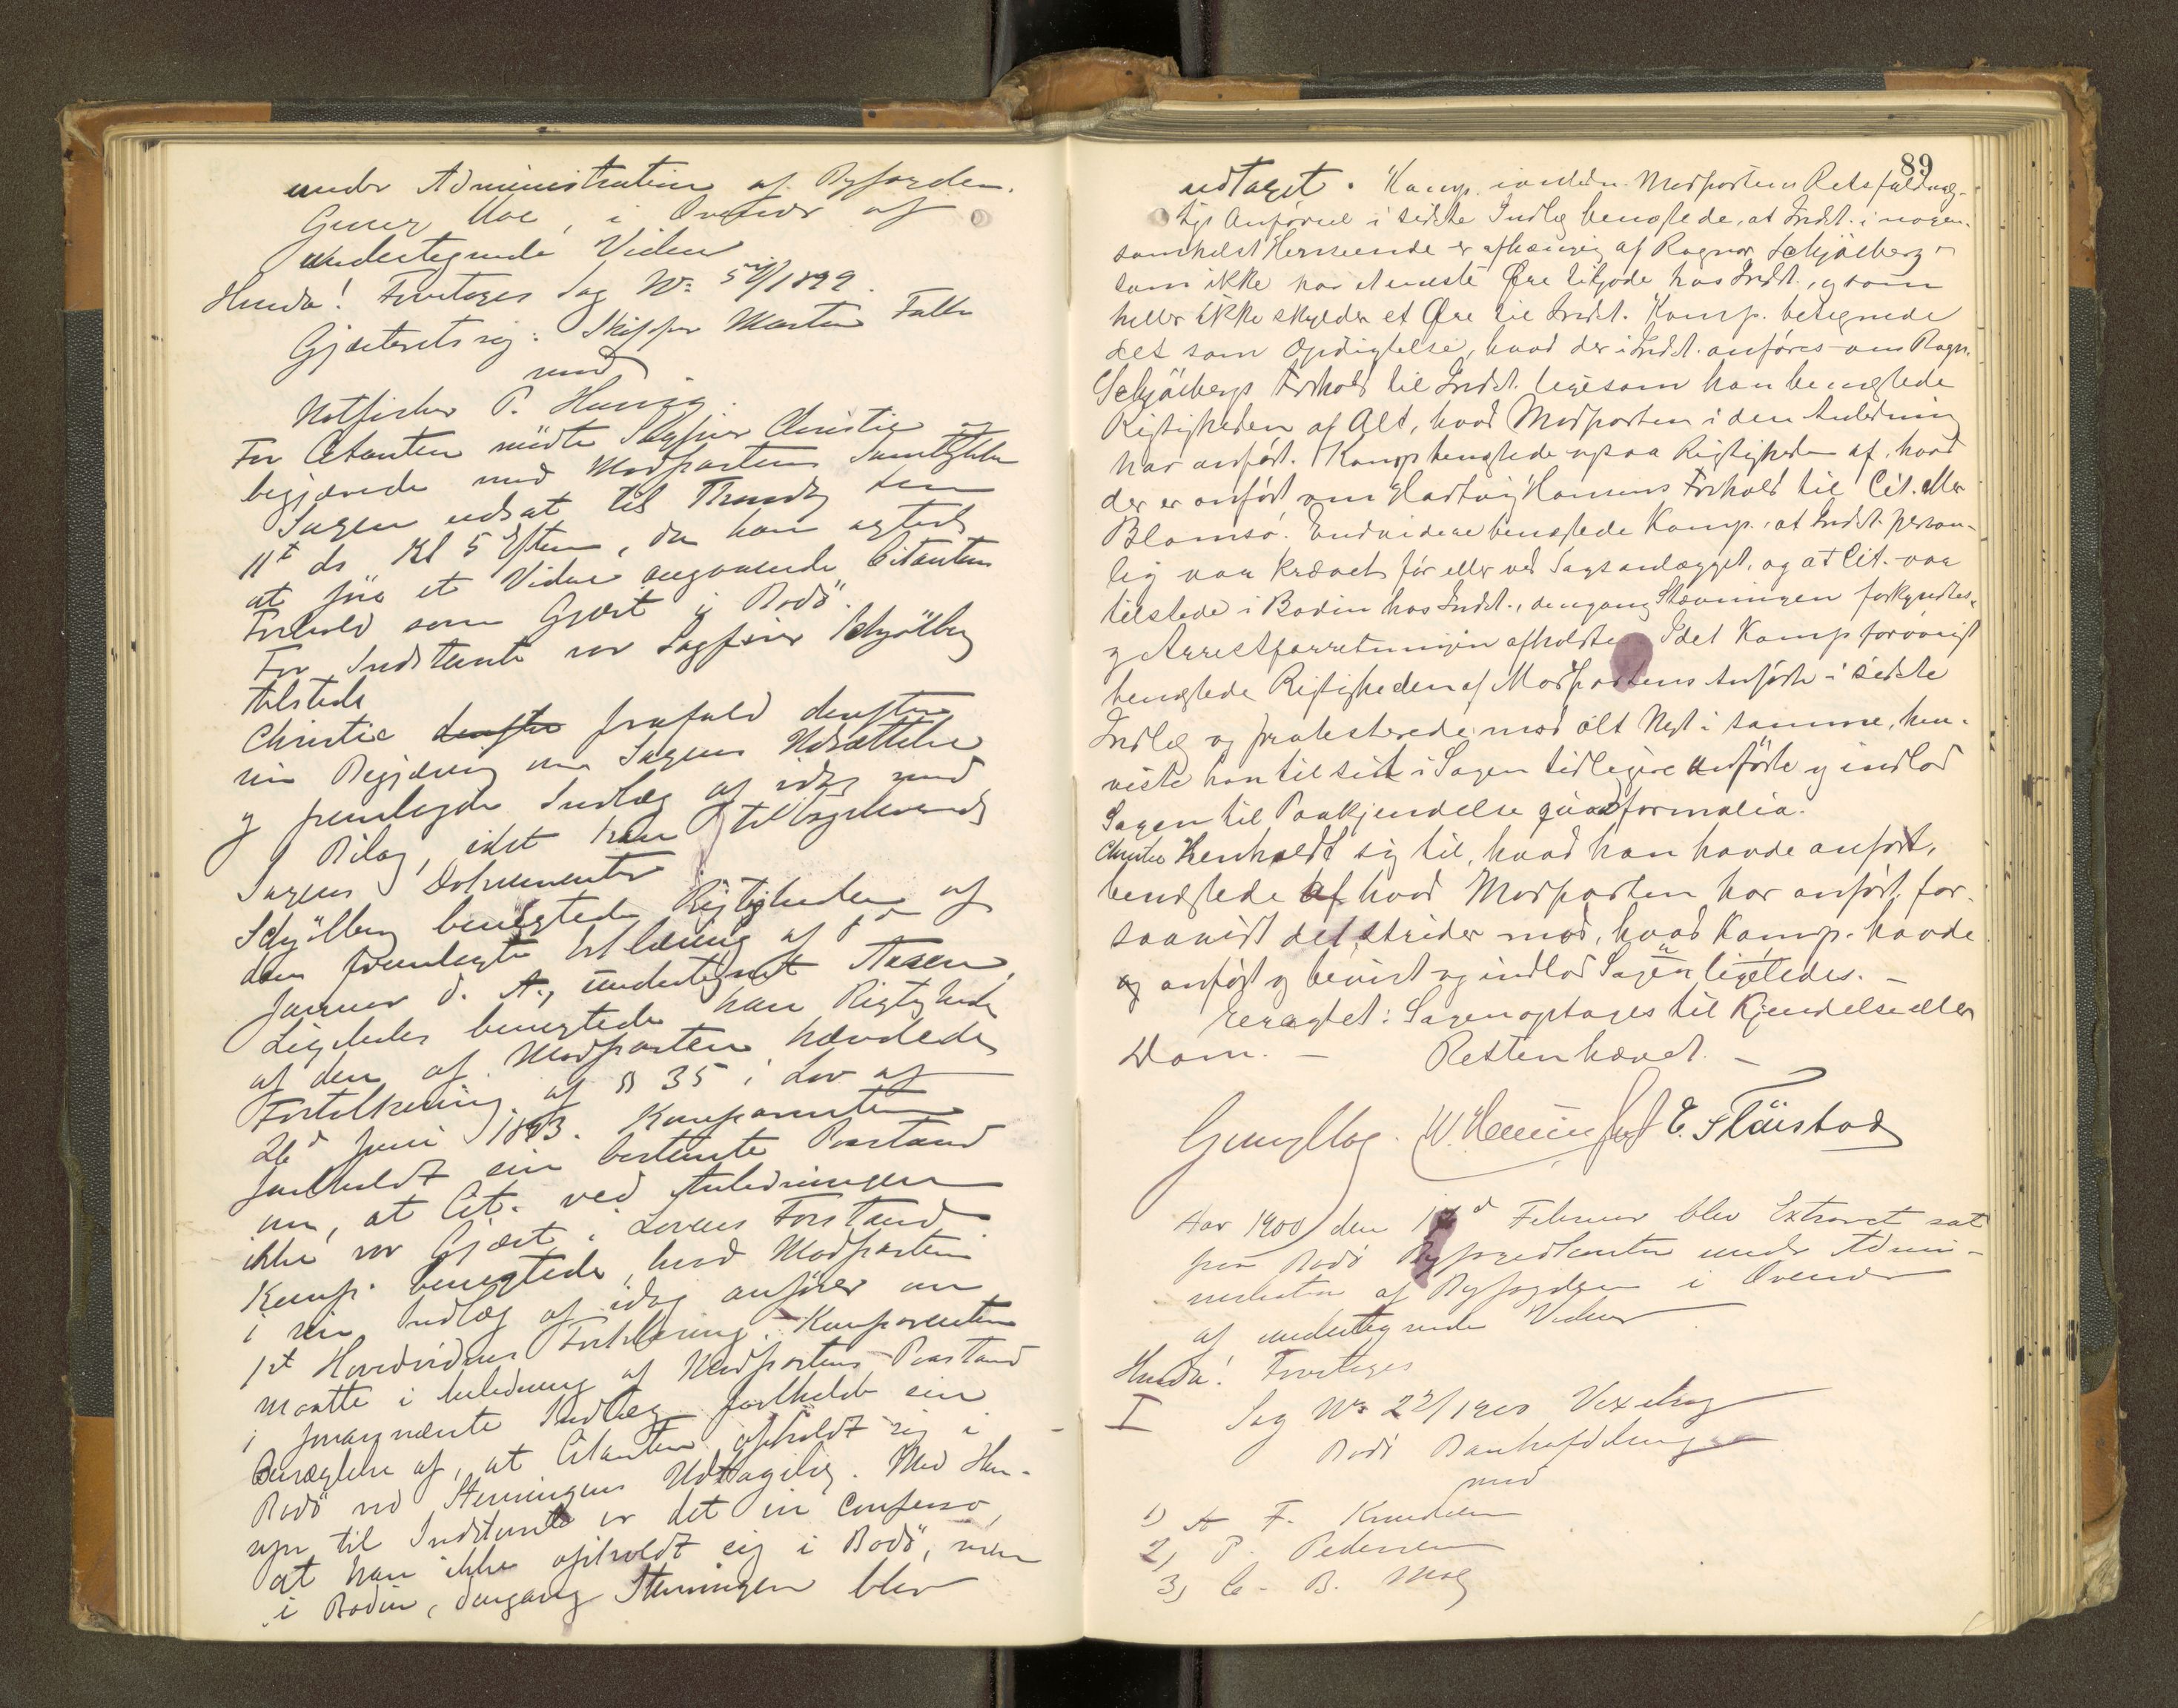 under Administration af Byfogden
Georg Moe, i Overvær af
undertegnede Vidner
Hvorda! Foretages Sag No 54/1899.
Gjæsteretssag: Skipper Martin Falk
mod
Notfisker P. Hansen.
For Citanten mødte Sagfører Christie og
begjærede med Modpartens Samtykke
Sagen udsat til Thorsdag den
11te ds Kl 5 Eftm, da han agted
at føre et Vidne angaaende Citantens
Forhold som Gjest i Bodø.
For Indstevnte var Sagfører Schjølberg
tilstede
Christie frafaldt derefter
sin Begjæring om Sagens Udsættelse
og fremlagde Indlæg af idag med
1 Bilag, idet han tilbageleverede
Sagens Dokumenter
Schjølberg benegtede Rigtigheden af
den fremlagte Erklæring af
Januar d. A., undertegnet Aasen,
Ligeledes benegtede han Rigtighede
af den af Modparten hævdede
Fortolkning af § 35 i Lov af
26d Juni 1893. Komparenten
fastholdt sin bestemte Paastand
om, at Cit. ved Anledningen
ikke var Gjæst i Lovens Forstand
Komp. benegtede, hvad Modparten
i sin Indlæg af idag anfører om
1st Hovedvidnes Forklaring. Komparenten
maatte i Anledning af Modpartens Paastand
i fornævnte Indlæg fastholde sin
Benægtelse af, at Citanten opholdt sig i
Bodø ved Stevningens Udtagelse. Med Hen-
syn til Indstevnte er det in confesso,
at han ikke opholdt sig i Bodø, men
i Bodin, dengang Stevningen blev
89
udtaget. Komp. Modpartens Retsfuldmæg-
tigs Anførsel i sidste Indlæg benægtede, at Indst. i nogen-
somhelst Henseende er afhængig af Ragnar Schjølberg
som ikke har et eneste Øre tilgode hos Indst., og som
heller ikke skylder et Øre til Indst. Komp. betegnede
det som Opdigtelse, hvad der i Indst. anføres om Ragn.
Schjølbergs Forhold til Indst. ligesom han benægtede
Rigtigheden af Alt, hvad Modparten i den Anledning
har anført. Komp benegtede ogsaa Rigtigheden af, hvad
der er anført om Hartvig Hansens Forhold til Cit. eller
Blomsø. Endvidere benægtede Komp., at Indst. person-
lig var krævet før eller ved Sagsanlægget, og at Cit. var
tilstede i Bodin hos Indst., dengang Stævningen forkyndtes
og Arrestforretningen afholdtes. Idet Komp forøvrigt
benægtede Rigtigheden af Modpartens Anførte i sidste
Indlæg og protesterede mod alt Nyt i samme, hen-
viste han til sit i Sagen tidligere anførte og indlod
Sagen til Paakjendelse quad formalia.
Christie Henholdt sig til, hvad han havde anført,
benægtede hvad Modparten har anført, for-
saavidt det strider mod, hvad Komp. havde
anført og bevist og indlod Sagen ligeledes. —
Eragtet: Sagen optages til Kjendelse eller
Dom. — Retten hævet. —
Georg Moe. E. Fläistad
Aar 1900 den Februar blev Extraret sat
paa Bodø under Admi-
nistration af Byfogden i Overvær
af undertegnede Vidner
Hvorda! Foretages
I Sag No 22/1900 Vexelsag
Bodø Bankafdeling
mod
1) A F. Knudsen
2) P. Pedersen
3) C. B. Moe